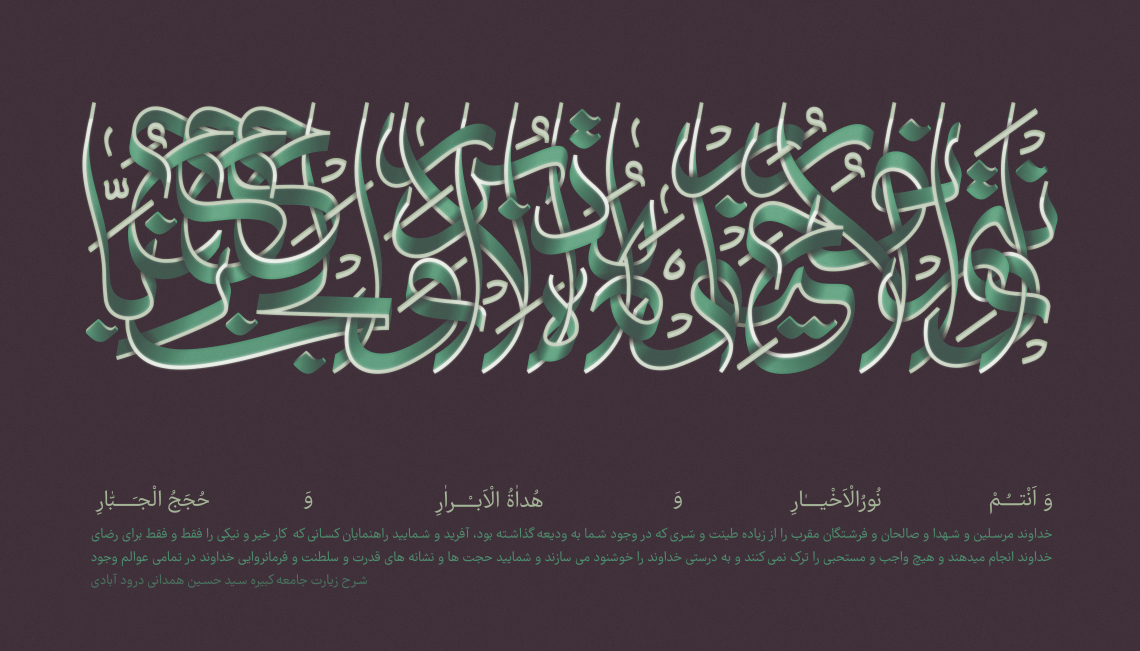 وَ أَنْتُمْ نُورُ الْأَخْيَارِ وَ هُدَاةُ الْأَبْرَارِ وَ حُجَجُ الْجَبَّارِ
وَ اَنْتــُـمْ نُورُالْاَخْیــٰـارِ وَ هُداٰةُ الْاَبــْـراٰرِ وَ حُجَجُ الْجـَــبّٰارِ
خداوند مرسلین و شهدا و صالحان و فرشتگان مقرب را از زیاده طینت و سَری که در وجود شما به ودیعه گذاشته بود، آفرید و شمایید راهنمایان کسانی که کار خیر و نیکی را فقط و فقط برای رضای
خداوند انجام میدهند و هیچ واجب و مستحبی را ترک نمی کنند و به درستی خداوند را خوشنود می سازند و شمایید حجت ها و نشانه های قدرت و سلطنت و فرمانروایی خداوند در تمامی عوالم وجود
شرح زیارت جامعه کبیره سید حسین همدانی درود آبادی